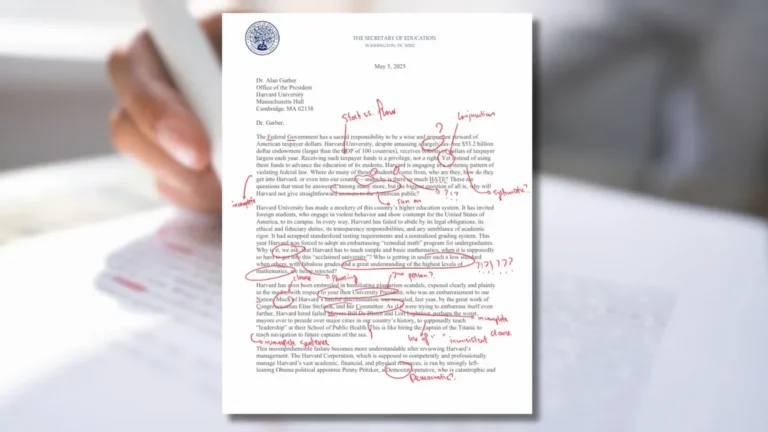 THE SECRETARY OF EDUCATION
WASHINGTON, DC 20202
May 5, 2025
Dr. Alan Garber
Office of the President
Harvard University
Massachusetts Hall
Cambridge, MA 02138
Dr. Garber,
conjunction
?
The Federal Government has a sacred responsibility to be a wise and important steward of
American taxpayer dollars. Harvard University, despite amassing a largely tax-free $53.2 billion
dollar endowment (larger than the GDP of 100 countries), receives billions of dollars of taxpayer
largess each year. Receiving such taxpayer funds is a privilege, not a right. Yet instead of using
these funds to advance the education of its students, Harvard is engaging in a systemic pattern of
violating federal law. Where do many of these students come from, who are they, how do they
get into Harvard, or even into our country—and why is there so much HATE? These are
questions that must be answered, among many more, but the biggest question of all is, why will
Harvard not give straightforward answers to the American public?
systematic?
incomplete
run on
?!?
Harvard University has made a mockery of this country's higher education system. It has invited
foreign students, who engage in violent behavior and show contempt for the United States of
America, to its campus. In every way, Harvard has failed to abide by its legal obligations, its
ethical and fiduciary duties, its transparency responsibilities, and any semblance of academic
rigor. It had scrapped standardized testing requirements and a normalized grading system. This
year Harvard was forced to adopt an embarrassing "remedial math" program for undergraduates.
Why is it, we ask, that Harvard has to teach simple and basic mathematics, when it is supposedly
so hard to get into this "acclaimed university"? Who is getting in under such a low standard
when others, with fabulous grades and a great understanding of the highest levels of
mathematics, are being rejected?
clause
phrasing
person?
Harvard has even been embroiled in humiliating plagiarism scandals, exposed clearly and plainly
in the media, with respect to your then University President, who was an embarrassment to our
Nation. Much of Harvard's hateful discrimination was revealed, last year, by the great work of
Congresswoman Elise Stefanik, and her Committee. As if it were trying to embarrass itself even
further, Harvard hired failed Mayors Bill De Blasio and Lori Lightfoot, perhaps the worst
mayors ever to preside over major cities in our country's history, to supposedly teach
"leadership" at their School of Public Health. This is like hiring the captain of the Titanic to
teach navigation to future captains of the sea.
incomplete
clause
incomplete sentence
use of " "
inconsistent
This incomprehensible failure becomes more understandable after reviewing Harvard's
management. The Harvard Corporation, which is supposed to competently and professionally
manage Harvard's vast academic, financial, and physical resources, is run by strongly left-
leaning Obama political appointee Penny Pritzker, a Democrat operative, who is catastrophic and
Democratic?